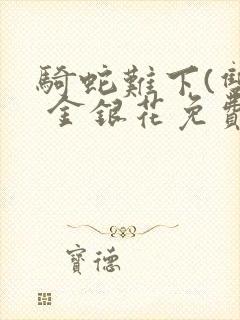 騎蛇難下(雙
金銀花免費
寶德